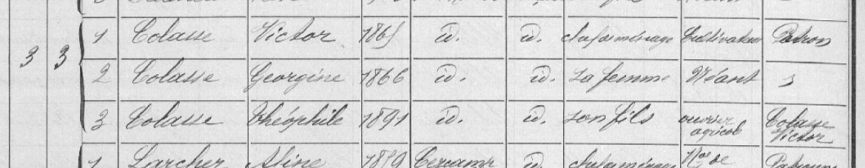 3 3 1 Colasse Victor 1865 id. id. chef ménage Cultivateur Patron
2 Colasse Georgine 1866 id. id. sa femme Néant
3 Colasse Théophile 1891 id. id. son fils ouvrier agricole Colasse Victor
1 Larcher Aline id. chef ménage